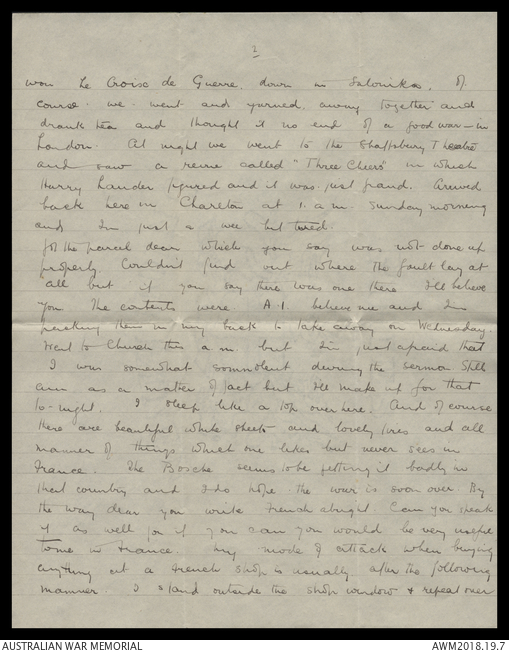 2
won Le Croisc de Guerre, down in Salonika. Of
course we went and yarned away together and
drank tea and thought it no end of a good war - in
London. At night we went to the Shaftsbury Theatre
and saw a revue called "Three Cheers" in which
Harry Lauder figured and it was just grand. Arrived
back here in Charlton at 1. a.m. Sunday morning
and I'm just a wee bit tired.
for the parcel dear which you say was not done up
properly Couldn't find out where the fault lay at
all but if you say there was one there I'll believe
you. The contents were A.1. believe me and I'm
packing them in my pack to take away on Wednesday.
Went to Church this a.m. but I'm just afraid that
I was somewhat somnolent during the sermon Still
as a matter of fact but I'll make up for that
to-night. I sleep like a top over here. And of course
there are beautiful white sheets and lovely fires and all
manner of things which one likes but never sees in
France. The Bosche seems to be getting it badly in
that country and I do hope the war is soon over. By
the way dear you write French alright Can you speak
it as well for if you can you would be very useful
to me in France. My mode of attack when buying
anything at a French shop is usually after the following
manner. I stand outside the shop window & repeat over
AUSTRALIAN WAR MEMORIAL
AWM2018.19.7